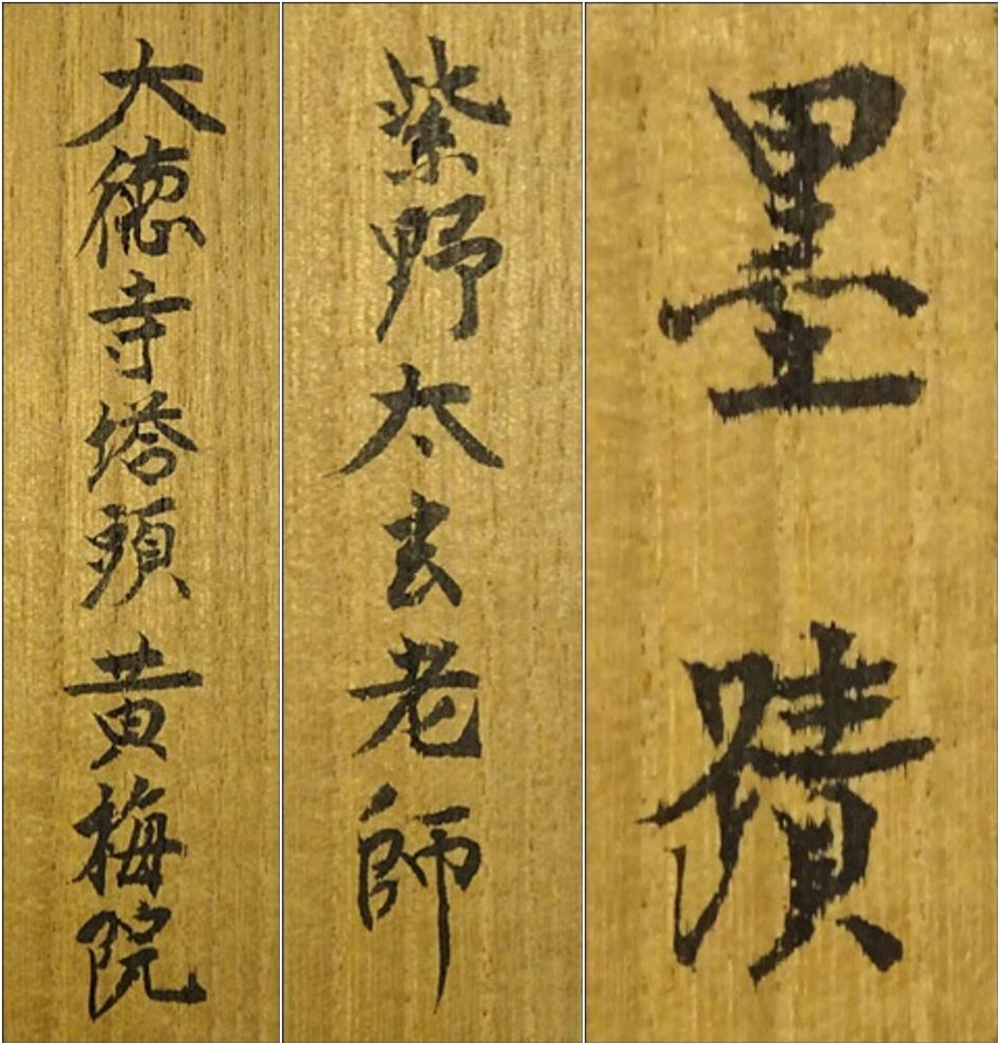 墨蹟
紫野太玄老師
大徳寺塔頭黄梅院